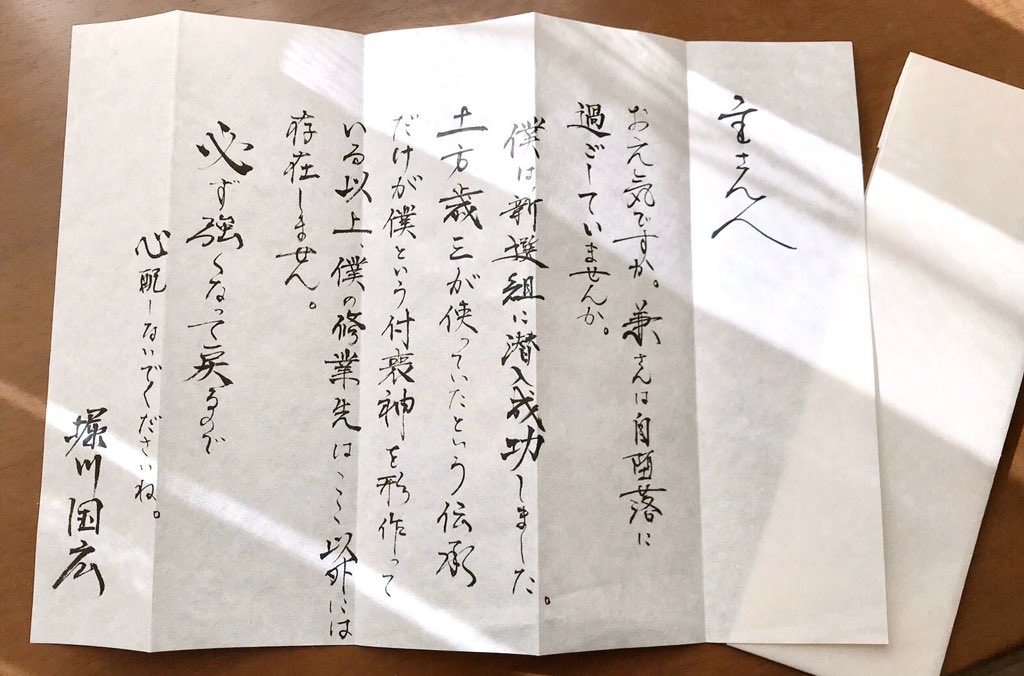 主さんへ
お元気ですか。兼さんは自堕落に
過ごしていませんか。
僕は、新撰組に潜入成功しました。
土方歳三が使っていたという伝承
だけが僕という付喪神を形作って
いる以上、僕の修業先はここ以外には
存在しません。
必ず強くなって戻るので
心配しないでくださいね。
堀川国広